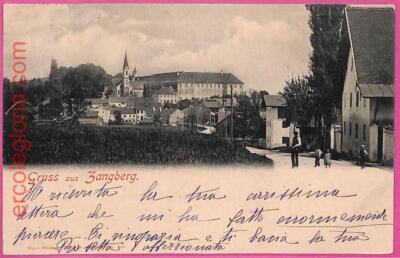 ercolegloria.com
Gruss aus Zangberg.
M'ricevito la tua carissima
lettera che mi ha fatto enormemente
piacere. Ti ringrazia e ti bacia la tua
affezionata